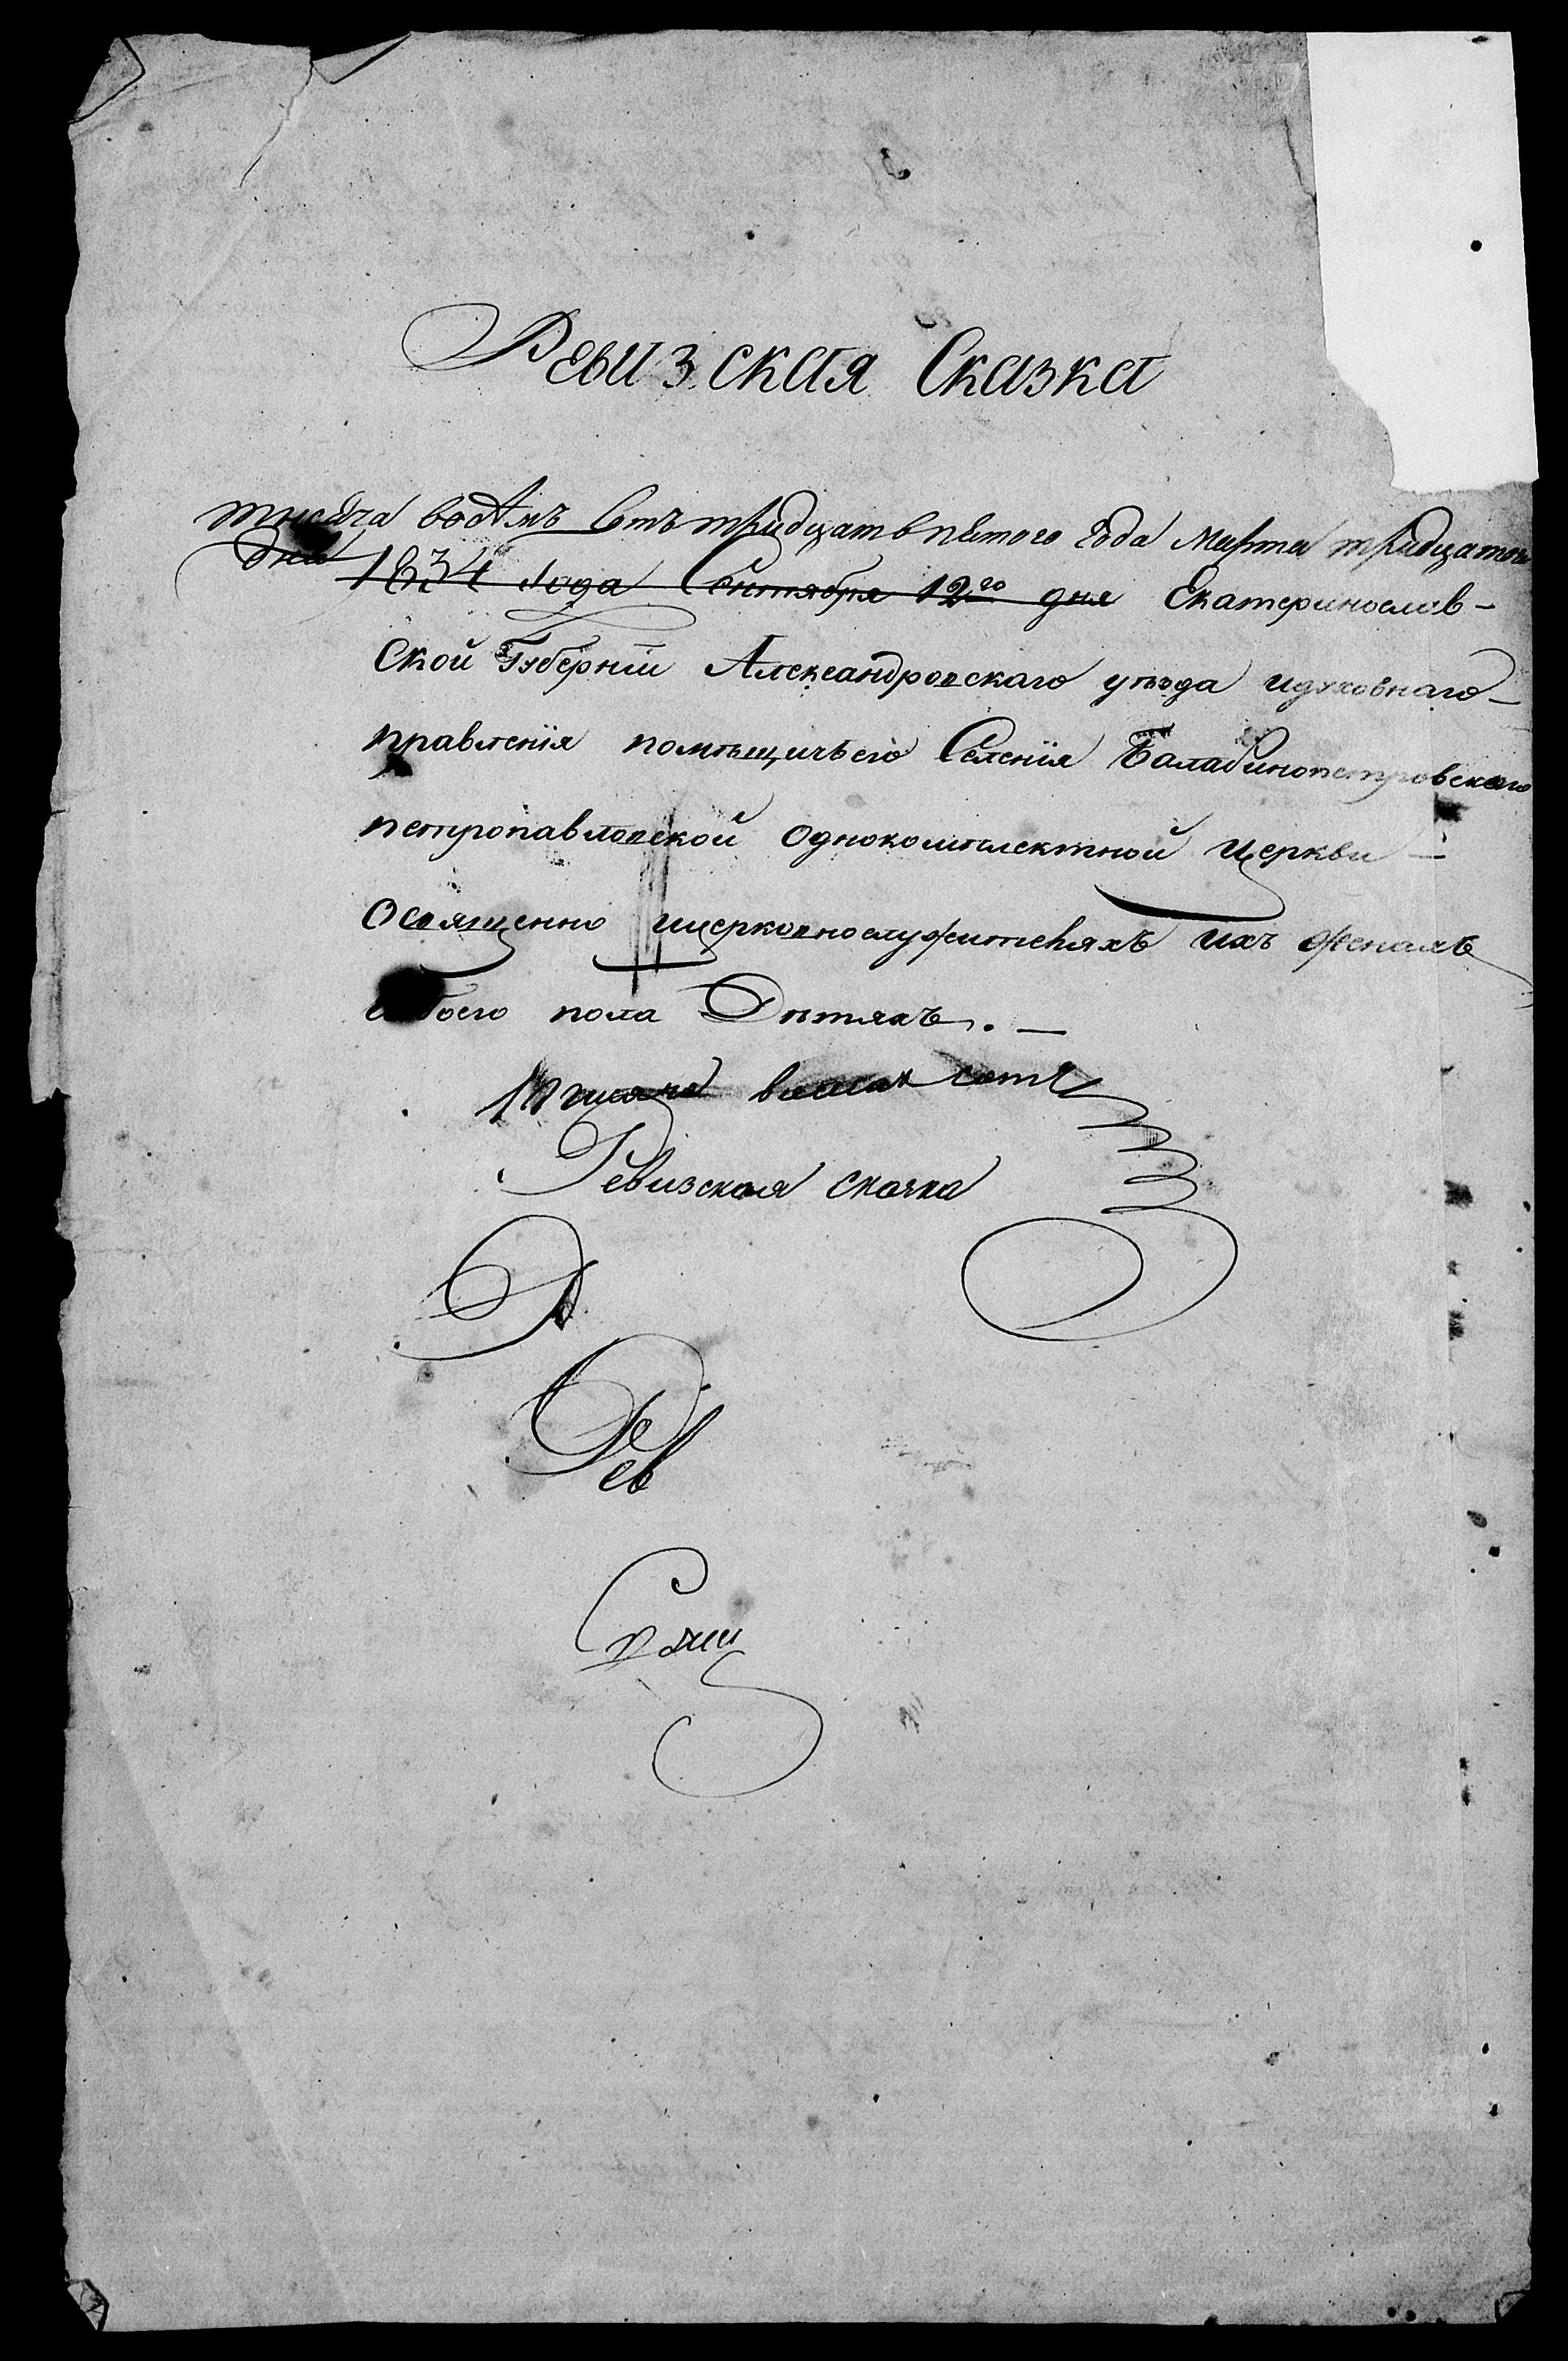 Ревизская Сказка
тысяча восемъ сотъ тридцать пятого года Марта тридцатого
дня
1834 года Сентября 12го дня Екатеринослав-
ской Губерніи Александровского уѣзда идуховнаго-
правленія помѣщичьего Селенія Балабинопетровского
петропавловской однокомплектной церкви —
Освященно ицерковнослужителяхъ ихъ женахъ
иобоего пола Дѣтяхъ. —
1 Тысяча восем сотъ
Ревизская сказка
Р
Рев